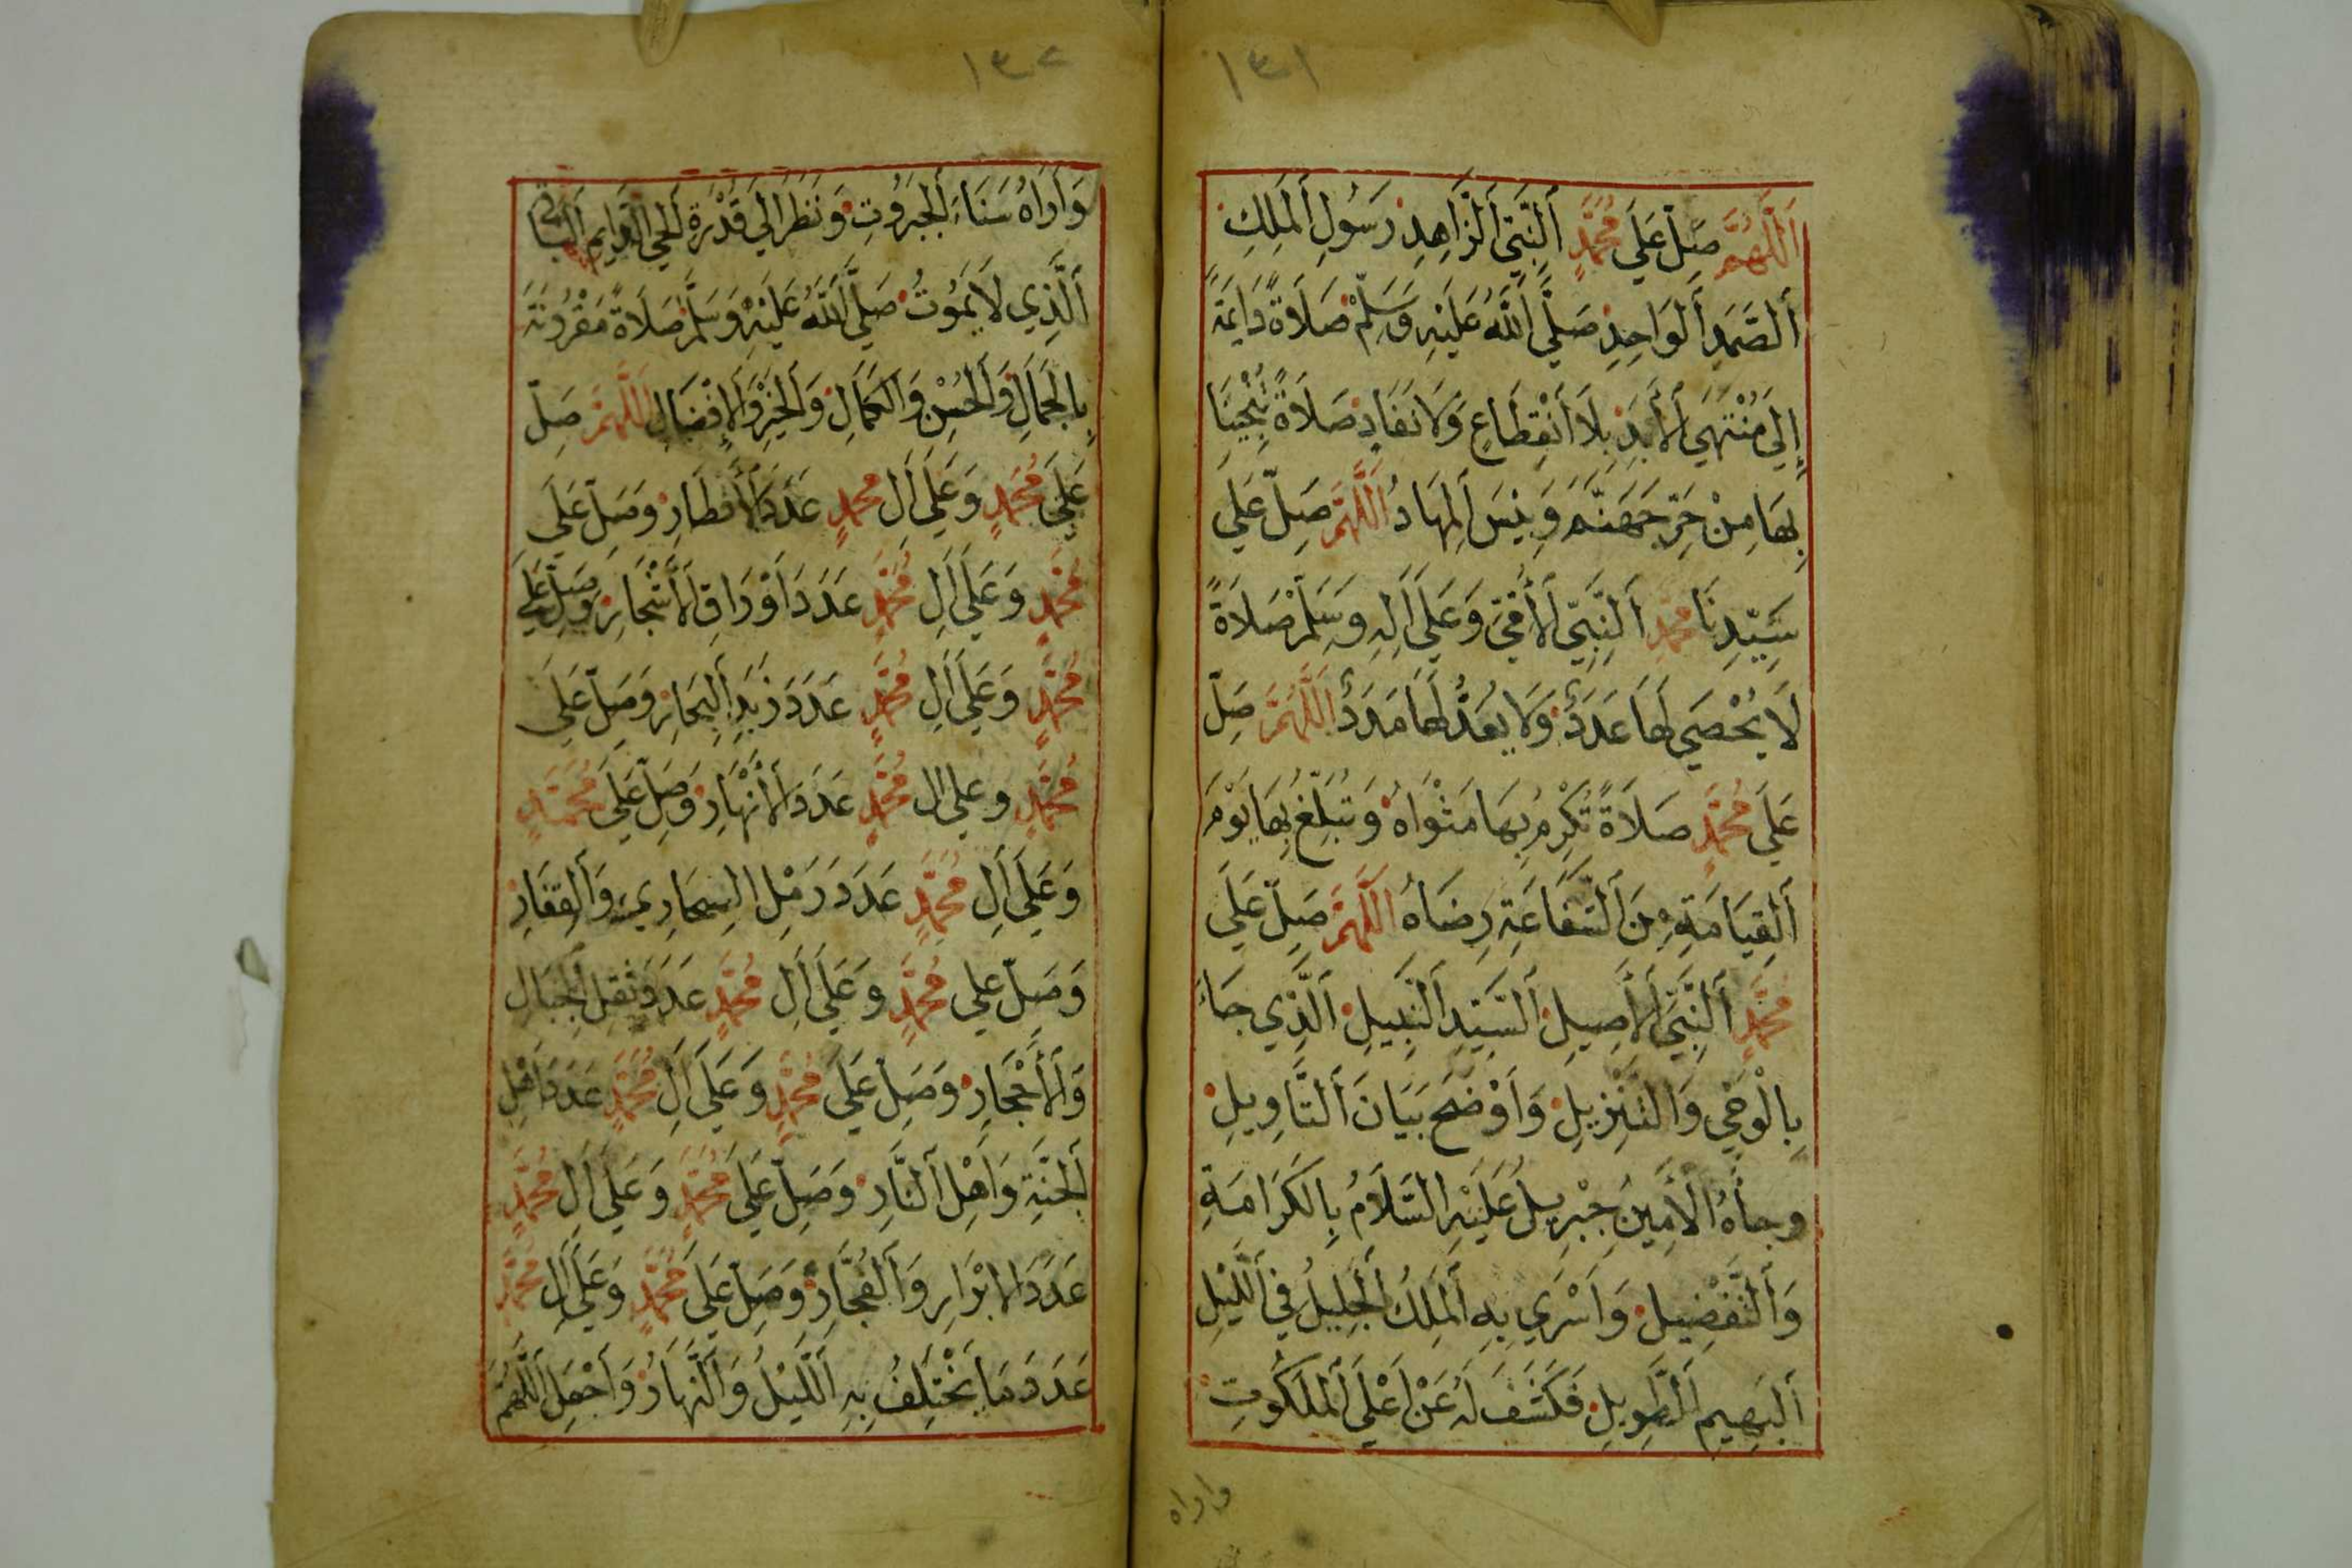 ١٣١
اَللَّهُمَّ صَلِّ عَلَي مُحَمَّدٍ اَلنَّبِيِّ اَلزَّاهِدِ رَسُولِ اَلْمَلِكِ
اَلصَّمَدِ اَلْوَاحِدِ صَلَّي اَللَّهُ عَلَيْهِ وَسَلِّمْ صَلَاةً دَايِمَةً
إِلَي مُنْتَهَي اَلْأَبَدِ بِلَا اَنْقِطَاعٍ وَلَا نَفَادٍ صَلَاةً تُنْجِينَا
بِهَا مِنْ حَرِّ جَهَنَّمَ وَبِيسَ اَلْمِهَادُ اَللَّهُمَّ صَلِّ عَلَي
سَيِّدِنَا مُحَمَّدٍ اَلنَّبِيِّ اَلْأُمِّيِّ وَعَلَي اَلِهِ وَسَلِّمْ صَلَاةً
لَا يُحْصَي لَهَا عَدَدٌ وَلَا يُعَدُّ لَهَا مَدَدٌ اَللَّهُمَّ صَلِّ
عَلَي مُحَمَّدٍ صَلَاةً تُكْرِمُ بِهَا مَثْوَاهُ وَتُبَلِّغُ بِهَا يَوْمَ
اَلْقِيَامَةِ مِنَ اَلشَّفَاعَةِ رِضَاهُ اَللَّهُمَّ صَلِّ عَلَي
مُحَمَّدٍ اَلنَّبِيِّ اَلْأَصِيلِ اَلسَّيِّدِ اَلنَّبِيلِ اَلَّذِي جَاءَ
بِالْوَحْيِ وَالتَّنْزِيلِ وَاَوْضَحَ بَيَانَ اَلتَّاوِيلِ
وجاَهُ الْأَمِينُ جِبْرِيلُ عَلَيْهِ السَّلَامُ بِالْكَرَامَةِ
وَاَلتَّفْضِيلِ وَاَسْرَي بِهِ اَلْمَلِكُ اَلْجَلِيلُ فِي اَللَّيْلِ
اَلْبَهِيمِ اَلطَّوِيلِ فَكَشَفَ لَهُ عَنْ اَعْلَي اَلْمَلَكُوتِ
واراه
١٣٢
وَاَرَاهُ سَنَاءَ اَلْجَبَرُوتِ وَنَظَرَ اِلَي قُدْرَةِ اَلْحَيِّ اَلدَّايِمِ اَلْبَاقِي
اَلَّذِي لَا يَمُوتُ صَلَّي اَللَّهُ عَلَيْهِ وَسَلَّمَ صَلَاةً مَقْرُونَةً
بِالْجَمَالِ وَاَلْحُسْنِ وَاَلْكَمَالِ وَاَلْخَيْرِ وَاَلْإِفْضَالِ اَللَّهُمَّ صَلِّ
عَلَي مُحَمَّدٍ وَعَلَي اَلِ مُحَمَّدٍ عَدَدَ اَلْأَقْطَارِ وَصَلِّ عَلَي
مُحَمَّدٍ وَعَلَي اَلِ مُحَمَّدٍ عَدَدَ اَوْرَاقِ اَلْأَشْجَارِ وَصَلِّ عَلَي
مُحَمَّدٍ وَعَلَي اَلِ مُحَمَّدٍ عَدَدَ زَبَدِ اَلْبِحَارِ وَصَلِّ عَلَي
مُحَمَّدٍ وَعَلي الِ مُحَمَّدٍ عَدَدَ اَلْأَنْهَارِ وَصَلِّ عَلَي مُحَمَّدٍ
وَعَلَي اَلِ مُحَمَّدٍ عَدَدَ رَمْلِ وَاَلْقِفَارِ
وَصَلِّ عَلي مُحَمَّدٍ وَعَلَي اَلِ مُحَمَّدٍ عَدَدَ ثِقْلِ اَلْجِبَالِ
وَاَلْأَحْجَارِ وَصَلِّ عَلَي مُحَمَّدٍ وَعَلَي اَلِ مُحَمَّدٍ عَدَدَ اَهْلِ
اَلْجَنَّةِ وَاَهْلِ اَلنَّارِ وَصَلِّ عَلَي مُحَمَّدٍ وَعَلَي اَلِ مُحَمَّدٍ
عَدَدَ الْاَبْرَارِ وَاَلْفُجَّارِ وَصَلِّ عَلَي مُحَمَّدٍ وَعَلَي اَلِ مُحَمَّدٍ
عَدَدَ مَا يَخْتَلِفُ بِهِ اَللَّيْلُ وَاَلنَّهَارُ وَاَجْعَلِ اَللَّهُمَّ